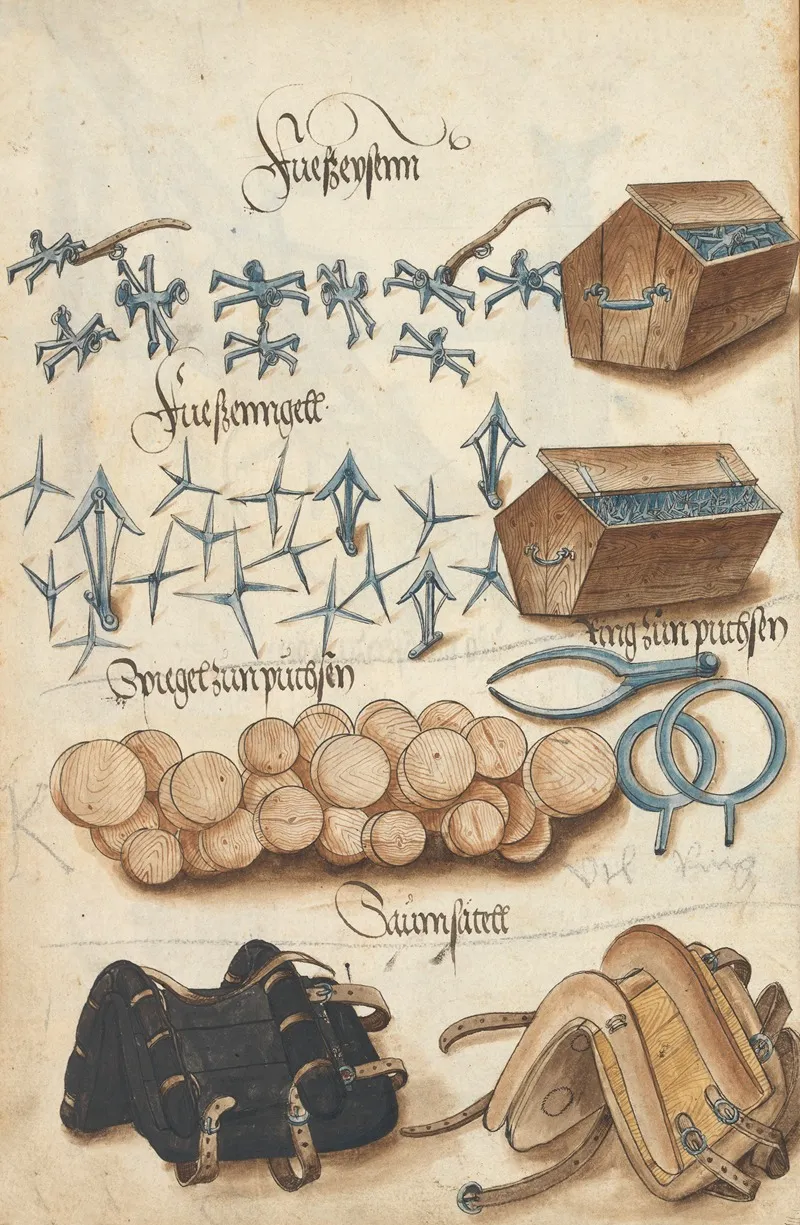 Fueßeysenn
Fueßenngell
Ring zun puchsen
Spiegel zun puchsen
K
Vil Ring
Saumsätell